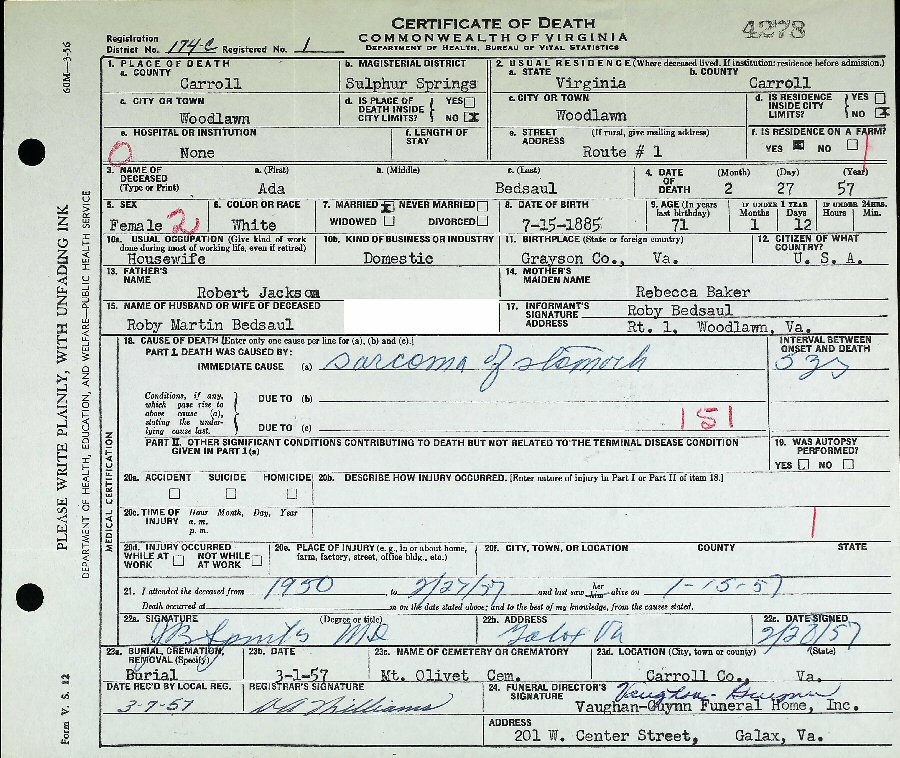 CERTIFICATE OF DEATH
COMMONWEALTH OF VIRGINIA
DEPARTMENT OF HEALTH, BUREAU OF VITAL STATISTICS
4273
Registration District No. 174-C Registered No. 1
60M—3-56
PLEASE WRITE PLAINLY, WITH UNFADING INK
DEPARTMENT OF HEALTH, EDUCATION, AND WELFARE—PUBLIC HEALTH SERVICE
Form V. S. 12
1. PLACE OF DEATH
a. COUNTY
Carroll
b. MAGISTERIAL DISTRICT
Sulphur Springs
2. USUAL RESIDENCE (Where deceased lived. If institution: residence before admission.)
a. STATE
Virginia
b. COUNTY
Carroll
c. CITY OR TOWN
Woodlawn
d. IS PLACE OF DEATH INSIDE CITY LIMITS? YES NO X
c. CITY OR TOWN
Woodlawn
d. IS RESIDENCE INSIDE CITY LIMITS? YES NO X
e. HOSPITAL OR INSTITUTION
0
None
f. LENGTH OF STAY
e. STREET ADDRESS (If rural, give mailing address)
Route # 1
f. IS RESIDENCE ON A FARM?
YES X NO
3. NAME OF DECEASED (Type or Print)
a. (First) b. (Middle) c. (Last)
Ada Bedsaul
4. DATE OF DEATH (Month) (Day) (Year)
2 27 57
5. SEX
Female 2
6. COLOR OR RACE
White
7. MARRIED X NEVER MARRIED
WIDOWED DIVORCED
8. DATE OF BIRTH
7-15-1885
9. AGE (In years last birthday)
71
IF UNDER 1 YEAR
Months Days
1 12
IF UNDER 24HRS.
Hours Min.
10a. USUAL OCCUPATION (Give kind of work done during most of working life, even if retired)
Housewife
10b. KIND OF BUSINESS OR INDUSTRY
Domestic
11. BIRTHPLACE (State or foreign country)
Grayson Co., Va.
12. CITIZEN OF WHAT COUNTRY?
U. S. A.
13. FATHER'S NAME
Robert Jackson
14. MOTHER'S MAIDEN NAME
Rebecca Baker
15. NAME OF HUSBAND OR WIFE OF DECEASED
Roby Martin Bedsaul
17. INFORMANT'S SIGNATURE ADDRESS
Roby Bedsaul
Rt. 1, Woodlawn, Va.
MEDICAL CERTIFICATION
18. CAUSE OF DEATH [Enter only one cause per line for (a), (b) and (c).]
PART I. DEATH WAS CAUSED BY:
IMMEDIATE CAUSE (a) sarcoma of stomach
INTERVAL BETWEEN ONSET AND DEATH
Conditions, if any, which gave rise to above cause (a), stating the underlying cause last.
DUE TO (b)
DUE TO (c)
151
PART II. OTHER SIGNIFICANT CONDITIONS CONTRIBUTING TO DEATH BUT NOT RELATED TO THE TERMINAL DISEASE CONDITION GIVEN IN PART I (a)
19. WAS AUTOPSY PERFORMED?
YES NO
20a. ACCIDENT SUICIDE HOMICIDE
20b. DESCRIBE HOW INJURY OCCURRED. (Enter nature of injury in Part I or Part II of item 18.)
20c. TIME OF INJURY Hour Month, Day, Year
a. m.
p. m.
20d. INJURY OCCURRED
WHILE AT WORK NOT WHILE AT WORK
20e. PLACE OF INJURY (e. g., in or about home, farm, factory, street, office bldg., etc.)
20f. CITY, TOWN, OR LOCATION COUNTY STATE
21. I attended the deceased from 1950 to 2/27/57 and last saw her him alive on 1-15-57
Death occurred at m on the date stated above; and to the best of my knowledge, from the causes stated.
22a. SIGNATURE (Degree or title)
MD
22b. ADDRESS
Galax Va
22c. DATE SIGNED
2/28/57
23a. BURIAL, CREMATION, REMOVAL (Specify)
Burial
23b. DATE
3-1-57
23c. NAME OF CEMETERY OR CREMATORY
Mt. Olivet Cem.
23d. LOCATION (City, town or county) (State)
Carroll Co., Va.
DATE REC'D BY LOCAL REG.
3-7-57
REGISTRAR'S SIGNATURE
Williams
24. FUNERAL DIRECTOR'S SIGNATURE
Vaughan-Guynn Funeral Home, Inc.
ADDRESS
201 W. Center Street, Galax, Va.